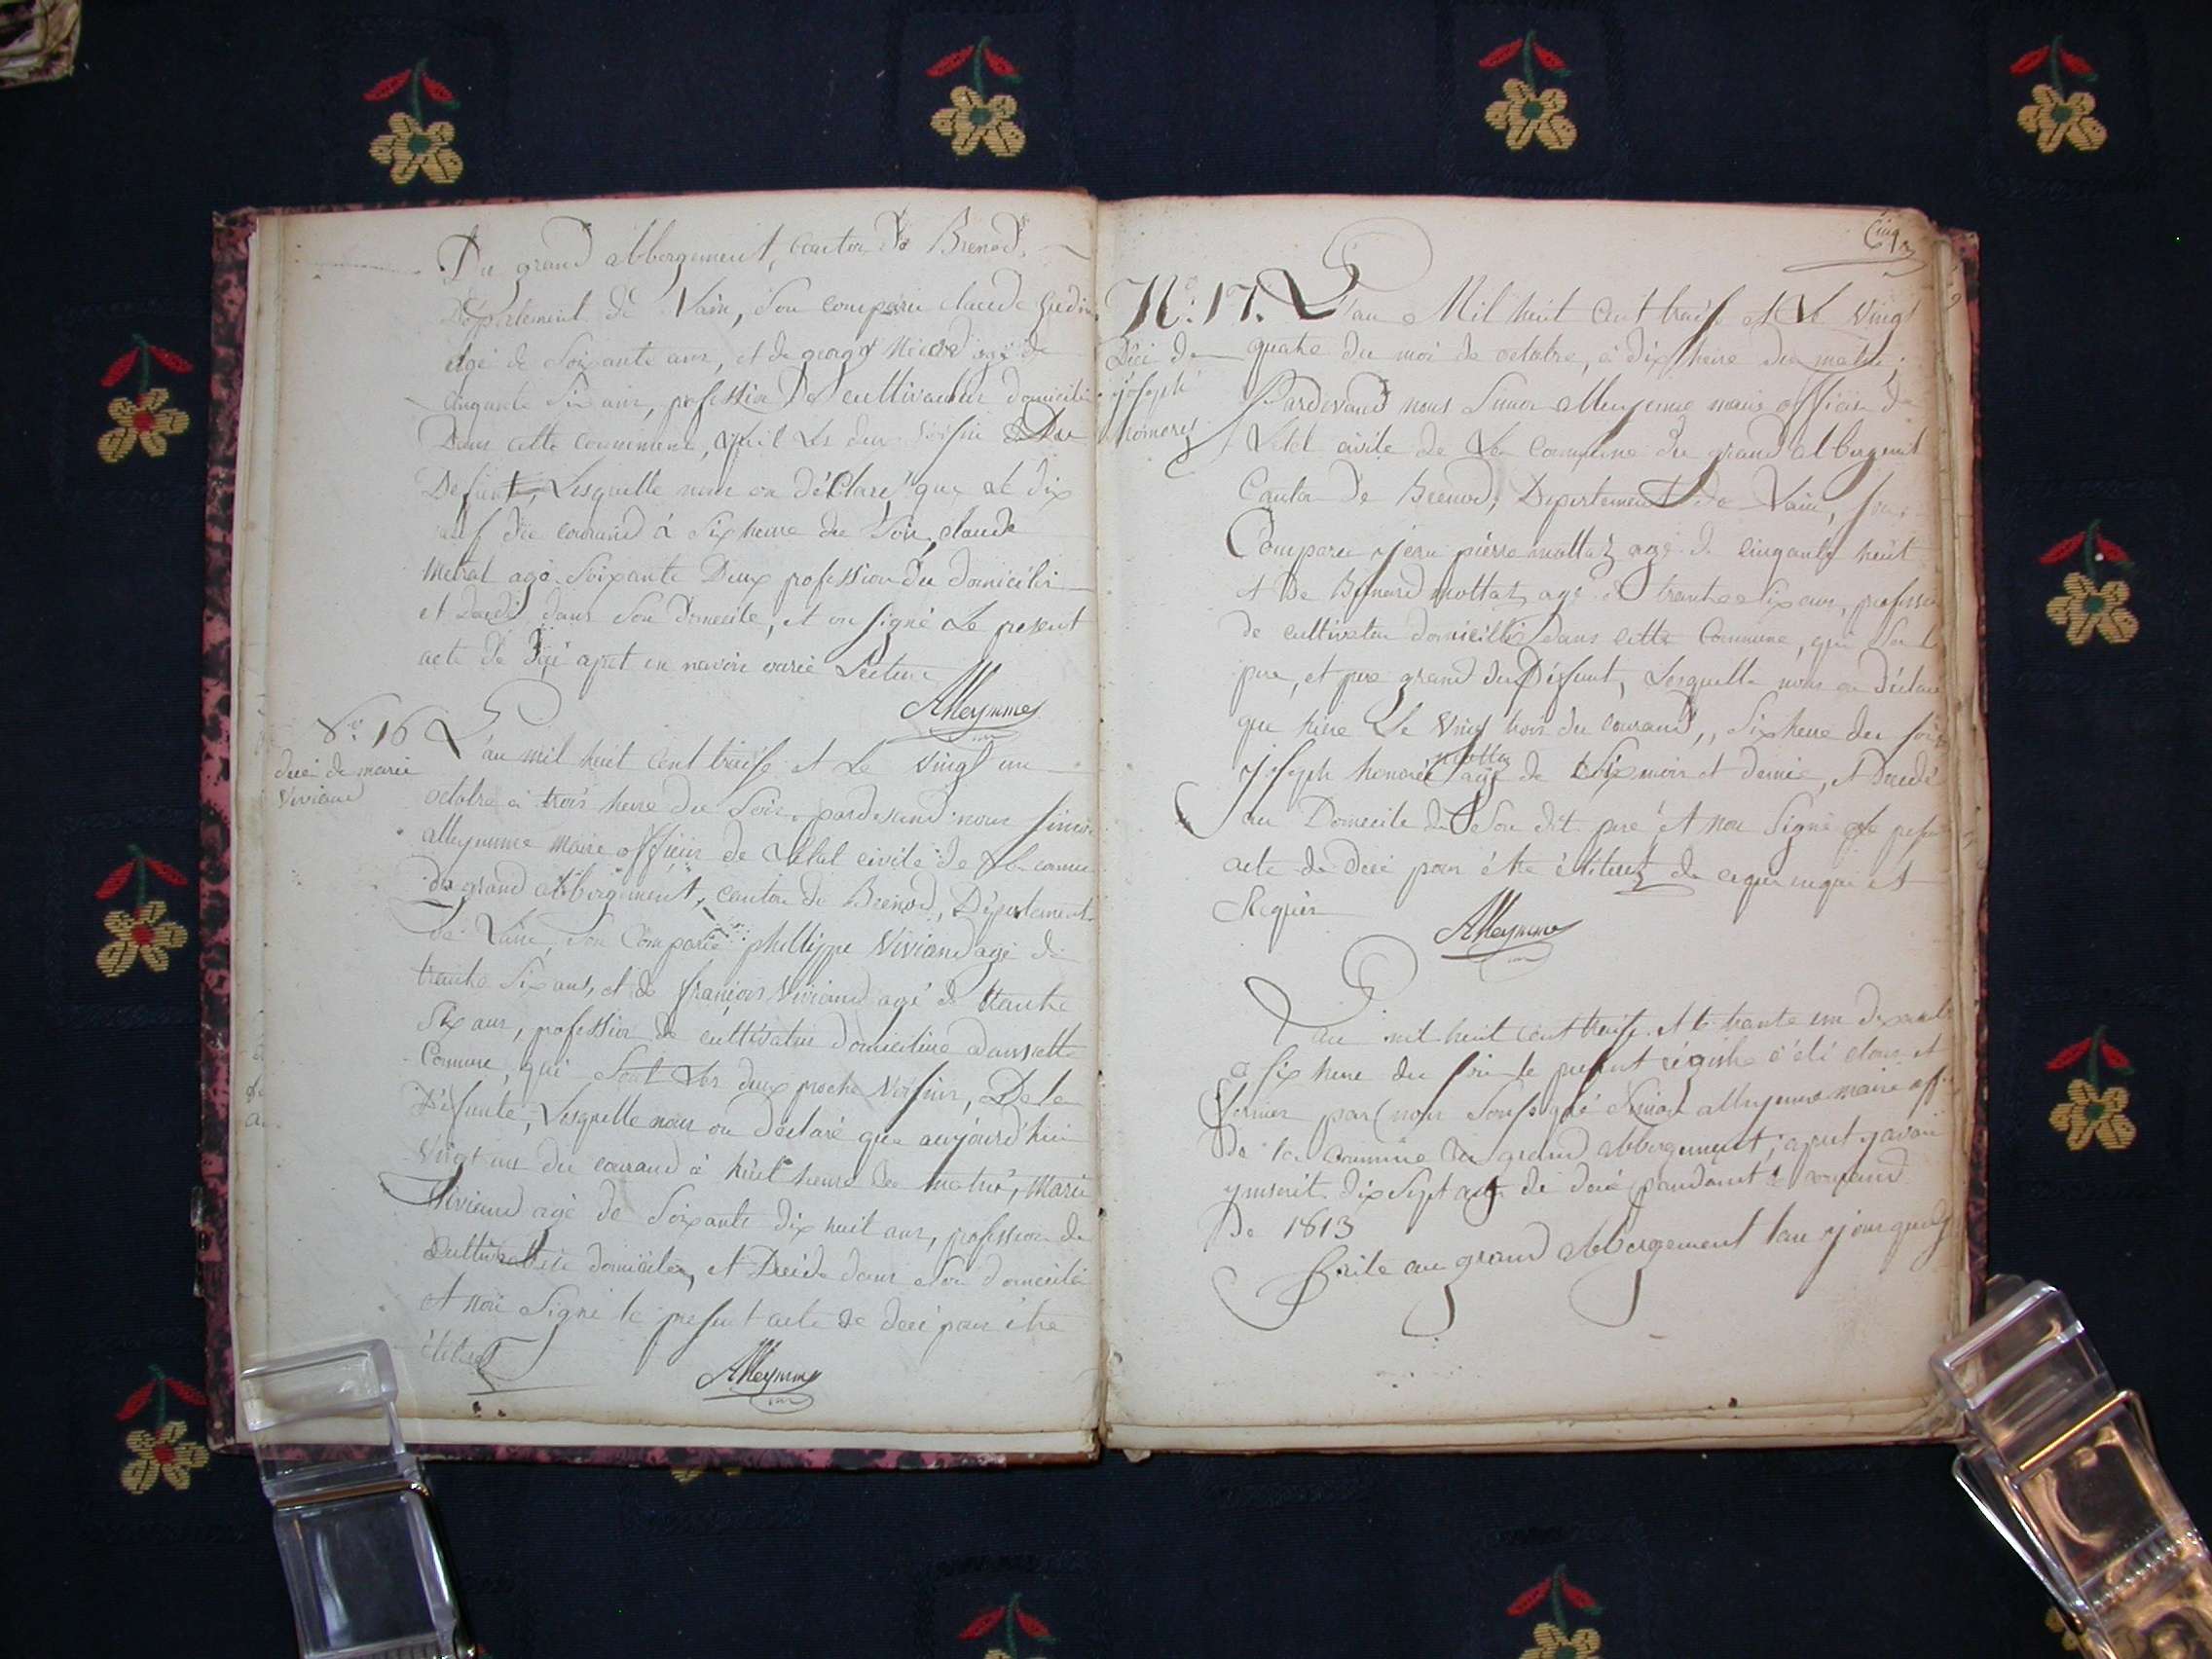 Du grand abbergement, canton de Brenod,
Département de Lain, son comparu claude
agé de Soixante ans, et de agé de
cinquante Six ans, profession De cultivateur domicilié
Dans cette commune, les deux voisin Du
Defunt, Lesquelle nous on déclaré que le dix
neuf du courand à Six heure du Soir, claude
metral agé Soixante Deux profession du domicilié
et décédé dans son domicile, et on signé Le present
acte de déci apret en navoir Lecture
AHeymme
N.º 16 L'an mil huit cent treise et Le vingt un
décé de marie
Viviand
octobre à trois heure du Soir, pardevand nous
maire officier de Letat civile de la
du grand abbergement, canton de Brenod, Département
de Lain, son Comparu phillippe Viviand agé de
trante Six ans, et de françois Viviand agé de trante
Six ans, profession de cultivateur domicilié dans cette
Commune, qui Sont Les deux proche voisin, De la
Défunte, Lesquelle nous on déclaré que aujourd'hui
Vingt un du courand à huit heure du matin, Marie
Viviand agé de Soixante dix huit ans, profession de
domicilié, et Décédé dans Son domicile
et non Signé le present acte de décé pour être
AHeymme
Cinq
N.º 17. L'an Mil huit Cent treise et Le Vingt
Décé de
joseph
quatre du moi de octobre, à dix heure du matin,
Pardevand nous maire officier de
Letat civile de La Commune du grand abbergement
Canton de Brenod, Departement de Lain, son
Comparu jean pierre mottaz agé de cinquante huit
et De Bernard mottaz agé de trante Six ans, profession
de cultivateur domicillié dans cette Commune, qui Son le
pere, et pere grand du Défunt, Lesquelle nous on déclaré
que hiere Le vingt trois du courand, Six heure du soir
mottaz
joseph honoré agé de Six mois et demie, et Décédé
au Domicile de Son dit pere et non Signé Le present
acte de décé pour être de
Requis
AHeymme
L'an mil huit cent treise et le trante un décembre
à six heure du soir le present régistre à été clour et
par nous maire
De la commune du grand abbergement, apret y avoir
ynscrit dix Sept acte de décé pandant le courand
De 1813
Faite au grand abbergement l'an jour que